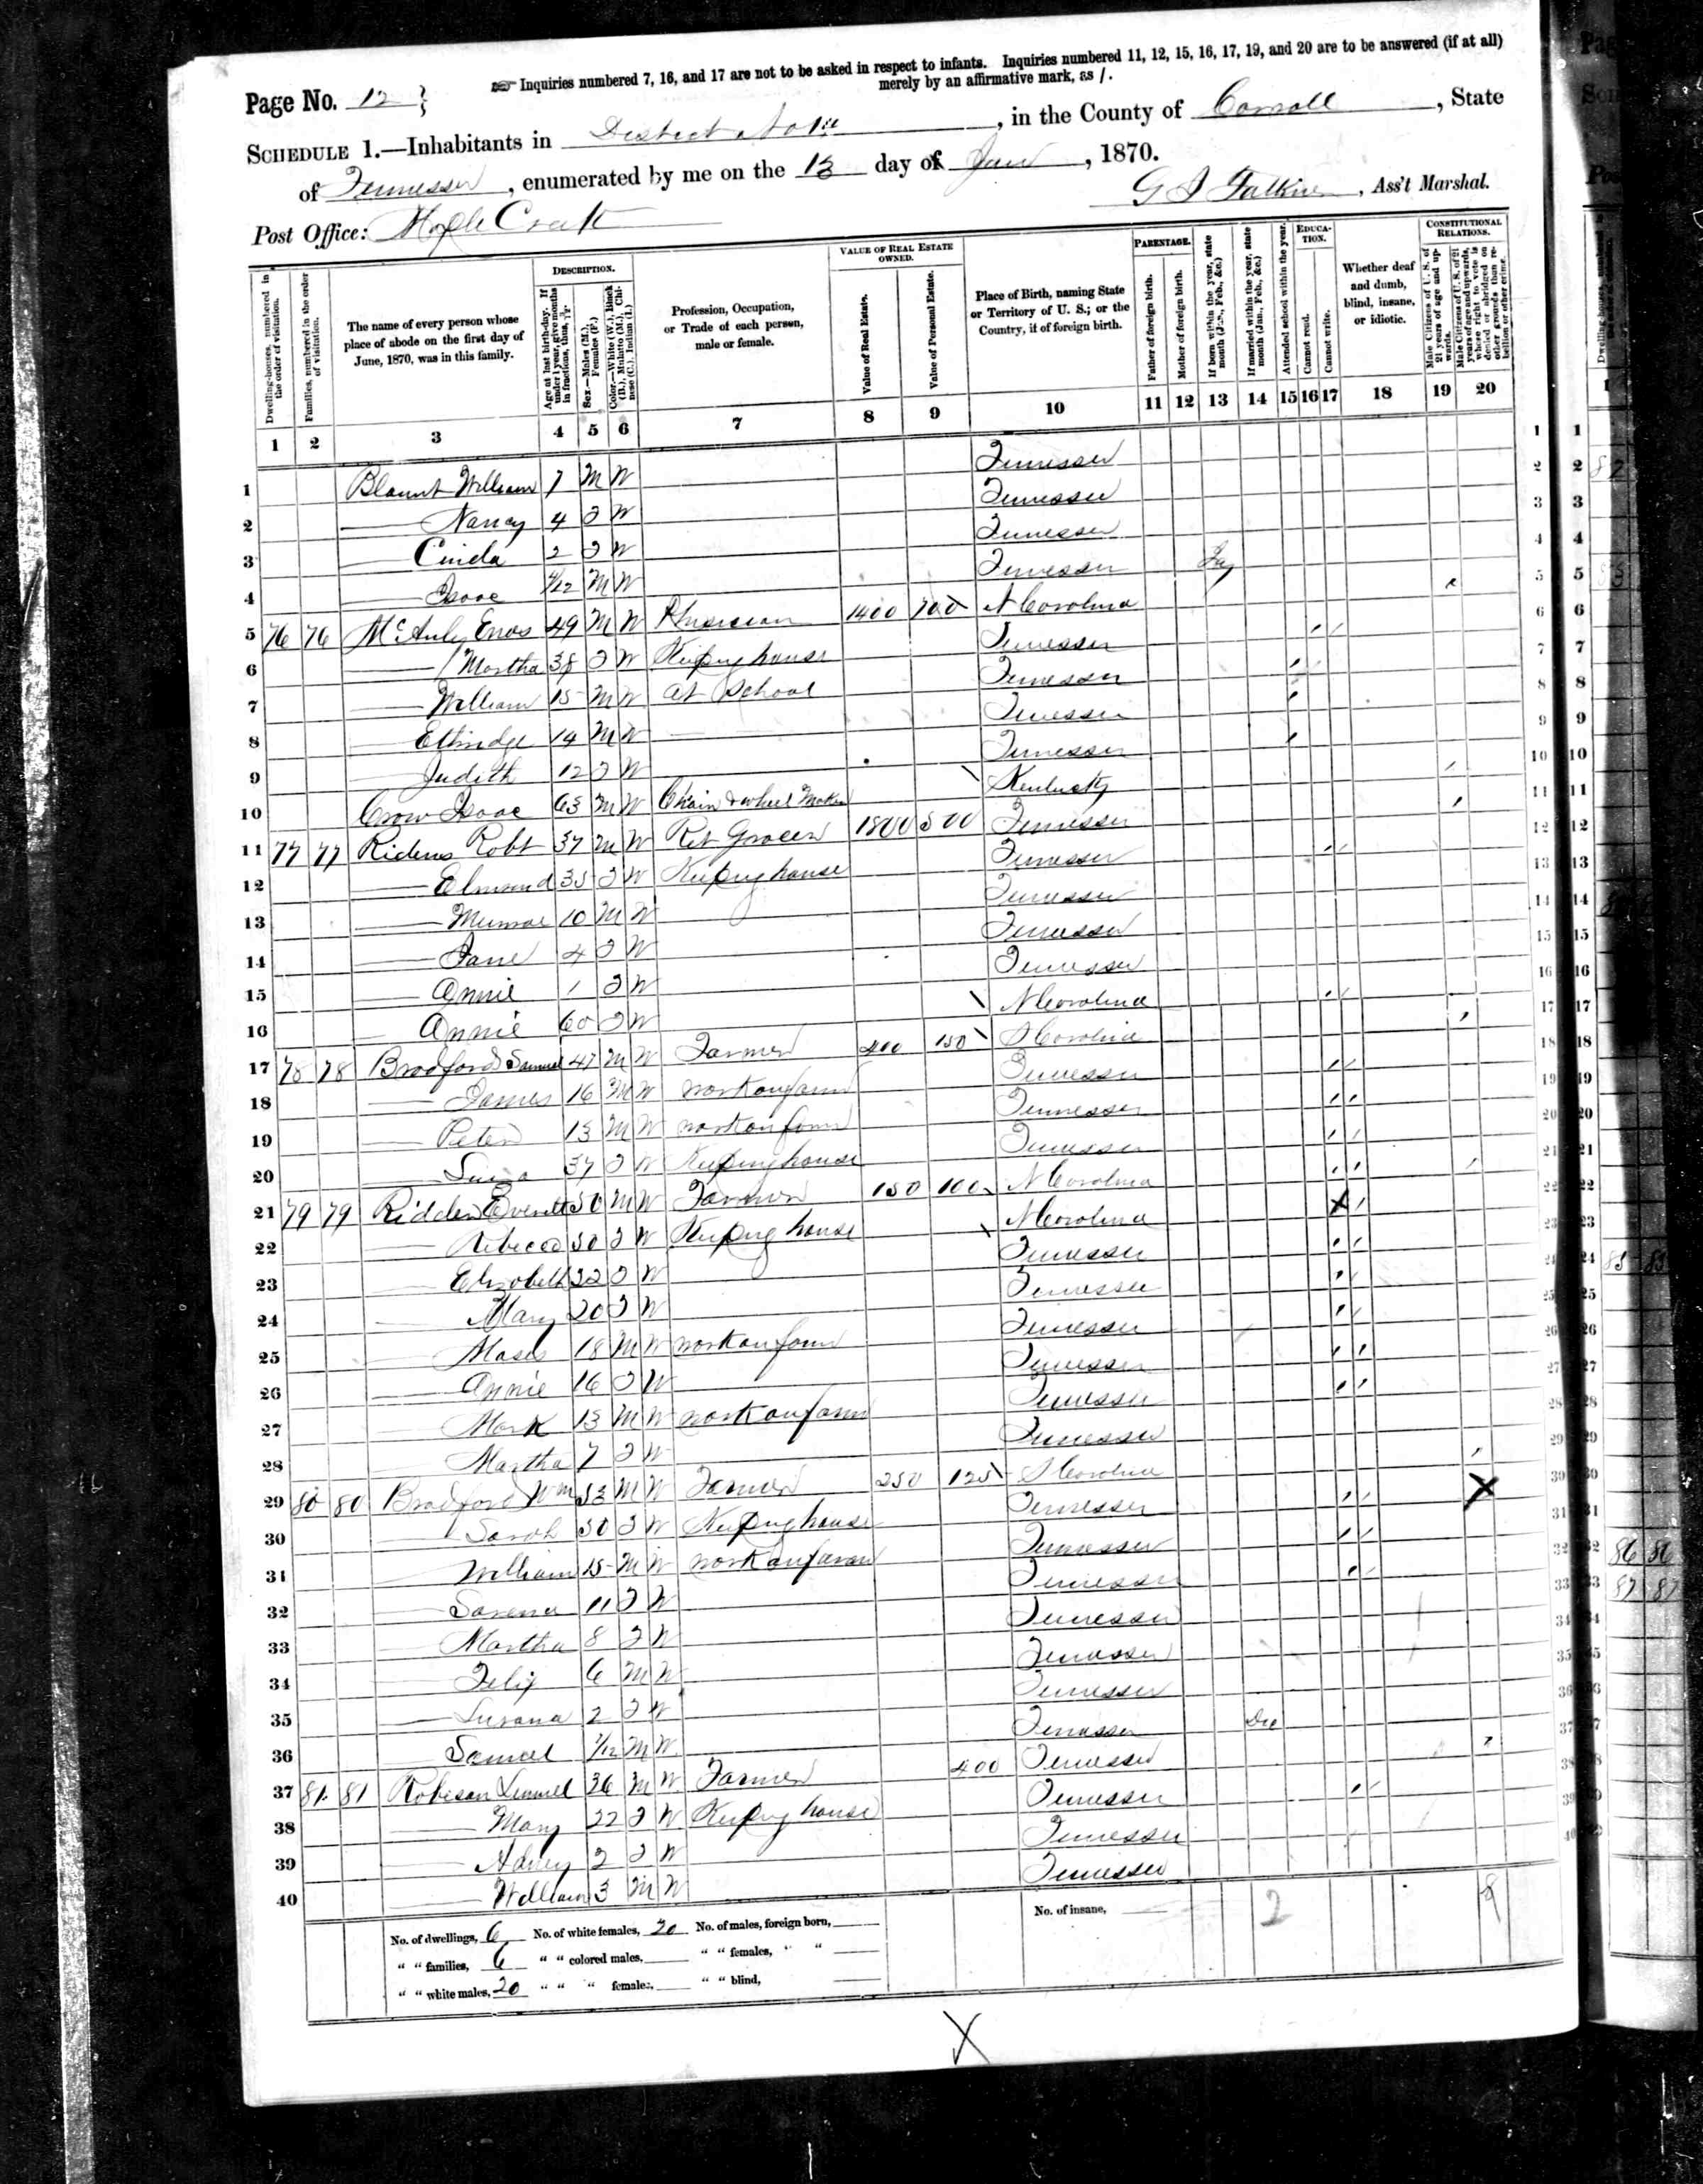 ☞ Inquiries numbered 7, 16, and 17 are not to be asked in respect to infants. Inquiries numbered 11, 12, 15, 16, 17, 19, and 20 are to be answered (if at all)
merely by an affirmative mark, as /.
Page No. 12
SCHEDULE 1.—Inhabitants in District No, in the County of Carroll, State
of Tennessee, enumerated by me on the 13 day of June, 1870.
Post Office: Maple Creek
G, Ass't Marshal.
Dwelling-houses, numbered in the order of visitation.
Families, numbered in the order of visitation.
The name of every person whose place of abode on the first day of June, 1870, was in this family.
DESCRIPTION.
Age at last birth-day. If under 1 year, give months in fractions, thus, 3/12.
Sex.—Males (M.), Females (F.)
Color.—White (W.), Black (B.), Mulatto (M.), Chinese (C.), Indian (I.)
Profession, Occupation, or Trade of each person, male or female.
VALUE OF REAL ESTATE OWNED.
Value of Real Estate.
Value of Personal Estate.
Place of Birth, naming State or Territory of U. S.; or the Country, if of foreign birth.
PARENTAGE.
Father of foreign birth.
Mother of foreign birth.
If born within the year, state month (Jan., Feb., &c.)
If married within the year, state month (Jan., Feb., &c.)
Attended school within the year.
EDUCATION.
Cannot read.
Cannot write.
Whether deaf and dumb, blind, insane, or idiotic.
CONSTITUTIONAL RELATIONS.
Male Citizens of U. S. of 21 years of age and upwards.
Male Citizens of U. S. of 21 years of age and upwards, whose right to vote is denied or abridged on other grounds than rebellion or other crime.
1 2 3 4 5 6 7 8 9 10 11 12 13 14 15 16 17 18 19 20
1 Blount William 7 M W Tennessee
2 Nancy 4 F W Tennessee
3 Cinda 2 F W Tennessee
4 Isaac M W Tennessee
5 76 76 McAuly Enos 49 M W Physician 1400 700 N Carolina
6 Martha 38 F W Keeping house Tennessee
7 William 15 M W At School Tennessee
8 Ethridge 14 M W Tennessee
9 Judith 12 F W Tennessee
10 Crow Isaac 63 M W Chair & wheel Maker Kentucky
11 77 77 Ridens Robt 37 M W Ret Grocer 1800 500 Tennessee
12 35 F W Keeping house Tennessee
13 Munroe 10 M W Tennessee
14 Jane 4 F W Tennessee
15 Annie 1 F W Tennessee
16 Annie 60 F W N Carolina
17 78 78 Bradford Samuel 47 M W Farmer 400 150 S Carolina
18 James 16 M W work on farm Tennessee
19 Peter 13 M W work on farm Tennessee
20 37 F W Keeping house Tennessee
21 79 79 Ridden Everett 50 M W Farmer 150 100 N Carolina
22 Rebecca 50 F W Keeping house N Carolina
23 Elizabeth 22 F W Tennessee
24 Mary 20 F W Tennessee
25 Moses 18 M W work on farm Tennessee
26 Annie 16 F W Tennessee
27 Mark 13 M W work on farm Tennessee
28 Martha 7 F W Tennessee
29 80 80 Bradford Wm 53 M W Farmer 250 125 S Carolina
30 Sarah 30 F W Keeping house Tennessee
31 William 15 M W work on farm Tennessee
32 11 F W Tennessee
33 Martha 8 F W Tennessee
34 Felix 6 M W Tennessee
35 Susana 2 F W Tennessee
36 Samuel M W Tennessee Dec
37 81 81 Robison Lemuel 36 M W Farmer 400 Tennessee
38 Mary 22 F W Keeping house Tennessee
39 2 F W Tennessee
40 William 3 M W Tennessee
No. of dwellings, 6 No. of white females, 20 No. of males, foreign born, No. of insane, 2 8
" " families, 6 " " colored males, " " females, " "
" " white males, 20 " " " females, " " blind,